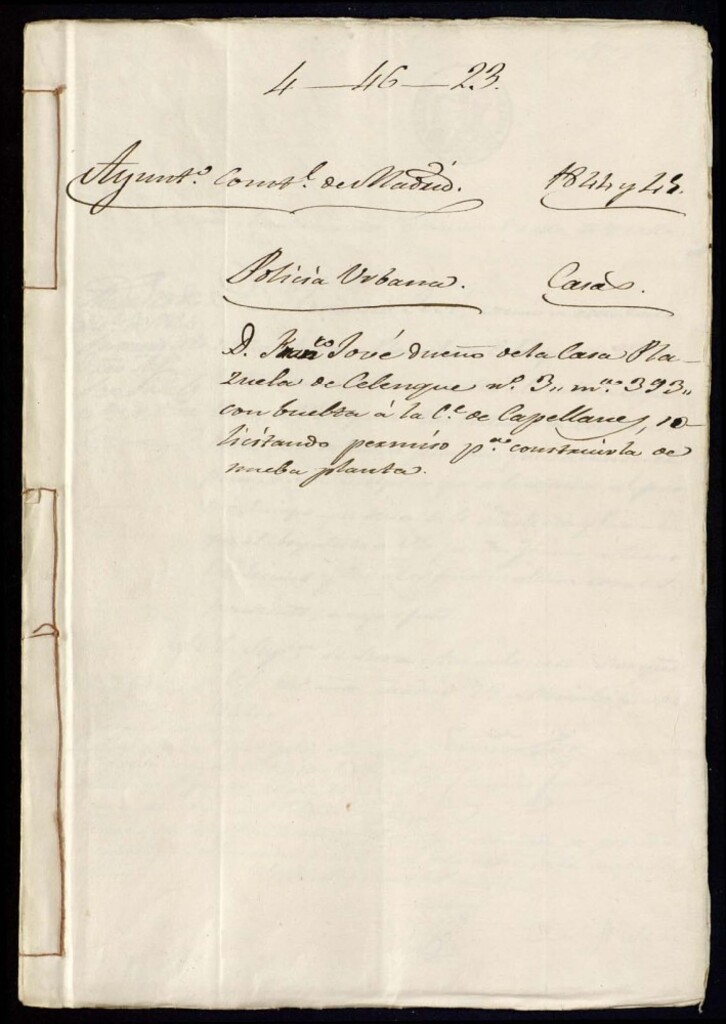 4 — 46 — 23.
Ayuntº. Constl. de Madrid. 1844 y 45.
Policia Urbana. Casas.
D. Franco José dueño de la Casa Pla-
zuela de Celenque nº. 3,, mna 393,,
con buelta á la Ce. de Capellanes, so-
licitando permiso pa. construirla de
nueba planta.